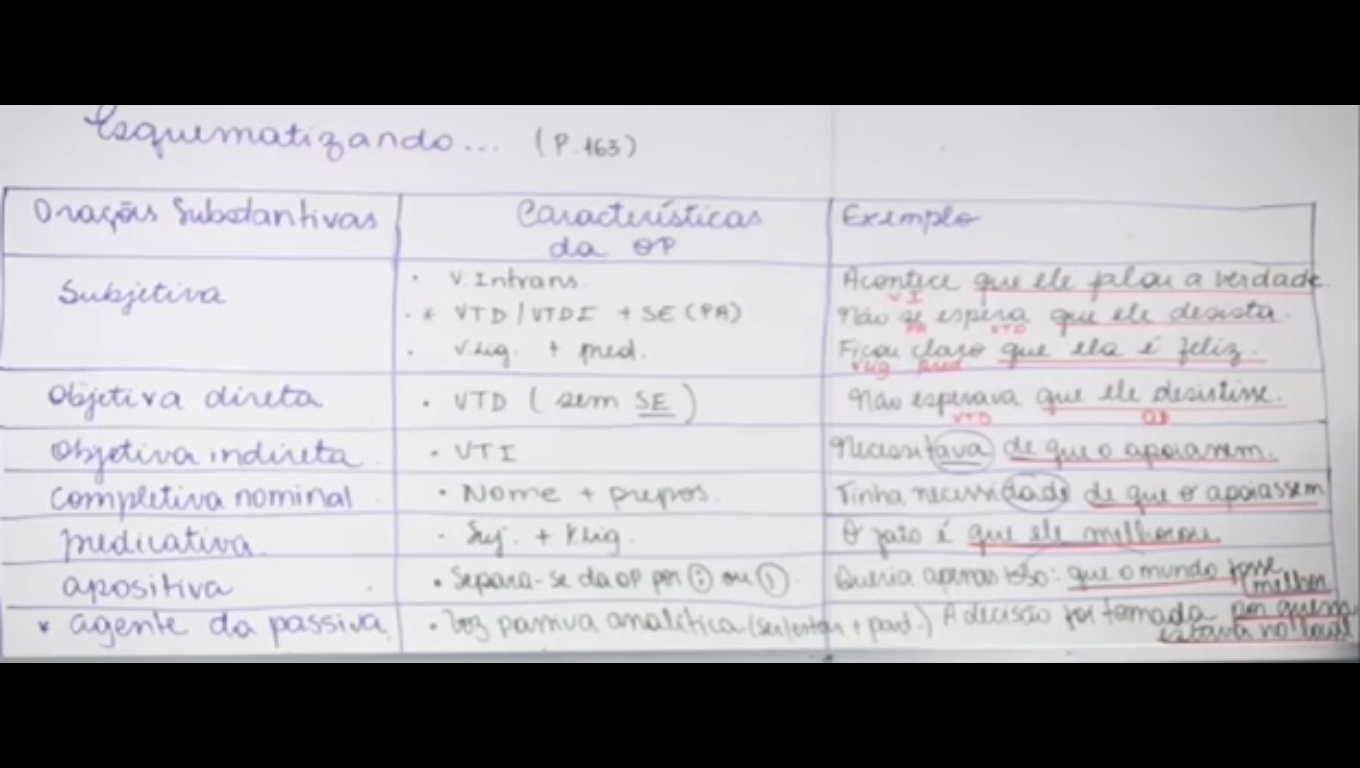 Esquematizando... (P.163)
Orações Substantivas
Características
da OP
Exemplo
Subjetiva
• V. Intrans.
• * VTD/VTDI + SE (PA)
• V.lig. + pred.
Acontece que ele falou a verdade.
VI
Não se espera que ele desista.
PA VTD
Ficou claro que ela é feliz.
VLig pred
Objetiva direta
• VTD (sem SE)
Não esperava que ele desistisse.
VTD OD
Objetiva indireta
• VTI
Necessitava de que o apoiassem.
Completiva nominal
• Nome + prepos.
Tinha necessidade de que o apoiassem
predicativa
• Suj. + V.lig.
O fato é que ele melhorou.
apositiva
• Separa-se da OP por : ou ,
Queria apenas isso: que o mundo fosse
melhor
* agente da passiva
• Voz passiva analítica (ser/estar + part.)
A decisão foi tomada por quem
estava no local